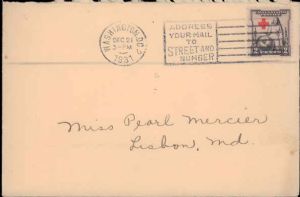 WASHINGTON, D.C.
DEC 21
3-PM
1931
ADDRESS
YOUR MAIL
TO
STREET AND
NUMBER
2 2
Miss Pearl Mercier
Lisbon, Md.